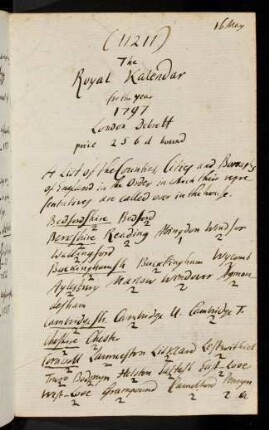 16 May
(11211)
The
Royal Kalendar
for the year
1797
London Debrett
price 2 s 6 d bound
A list of the Counties, Cities and Boroughs
of England in the Order in which their repre
sentatives are called over in the house.
Bedfordshire Bedford
2 2
Berkshire Reading Abingdon Windsor
2 2 1 2
Wallingford
2
Buckinghamsh Buckingham Wycomb
Aylesbury Marlow Wendover Agmon-
desham
Cambridgesh. Cambridge U. Cambridge T.
2 2 2
Cheshire Chester
2 2
Cornwall Launceston Liskeard Lestwithiel
Truro Bodmyn Helston Saltash East-Love
West-Love Grampound Camelford Penryn